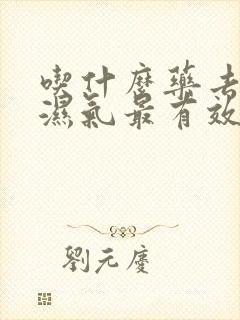 喫什麼藥去
濕氣最有效
劉元慶